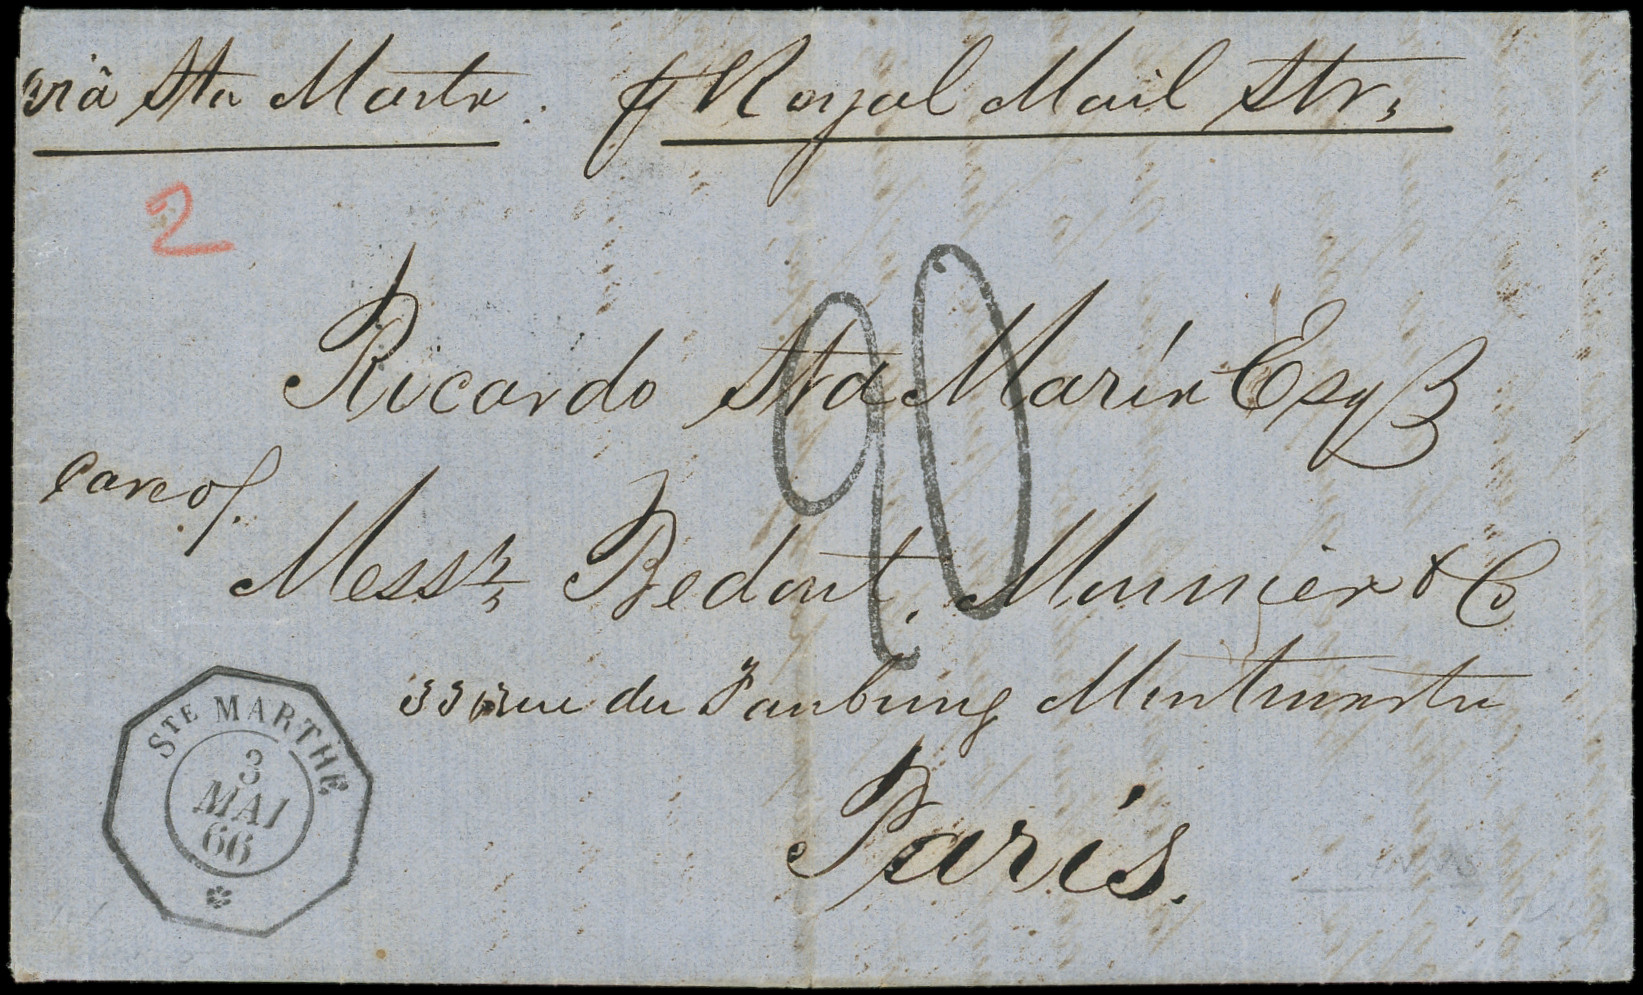 viâ Sta Marta. p Royal Mail Str,
2
Ricardo Sta Marín Esq
90
care of.
Messrs Bedout, Monnier & Co
33 rue du Faubourg Montmartre
STE MARTHE
3
MAI
66
París.